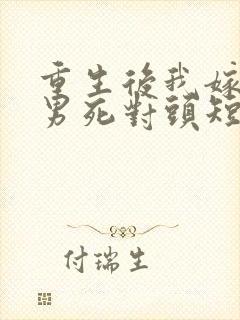 重生後我嫁
男死對頭短
付瑞生